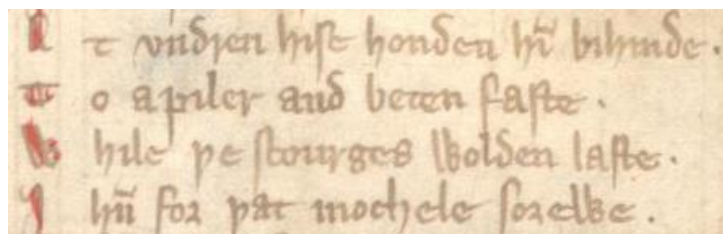 A t vndren hise honden hī bihinde.
T o a piler and beten faste.
W hile þe scourges wolden laste.
I hū for þat mochele sorewe.